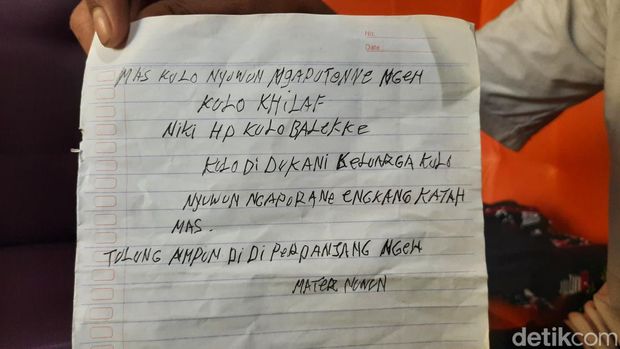 No.
Date
MAS KULO NYUWUN NGAPUTENNE NGEH
KULO KHILAF
NIKI HP KULO BALEKKE
KULO DI DUKANI KELUARGA KULO
NYUWUN NGAPURANE ENGKANG KATAH
MAS.
TULUNG AMPUN DI DI PERPANJANG NGEH
MATER NUNUN
detikcom